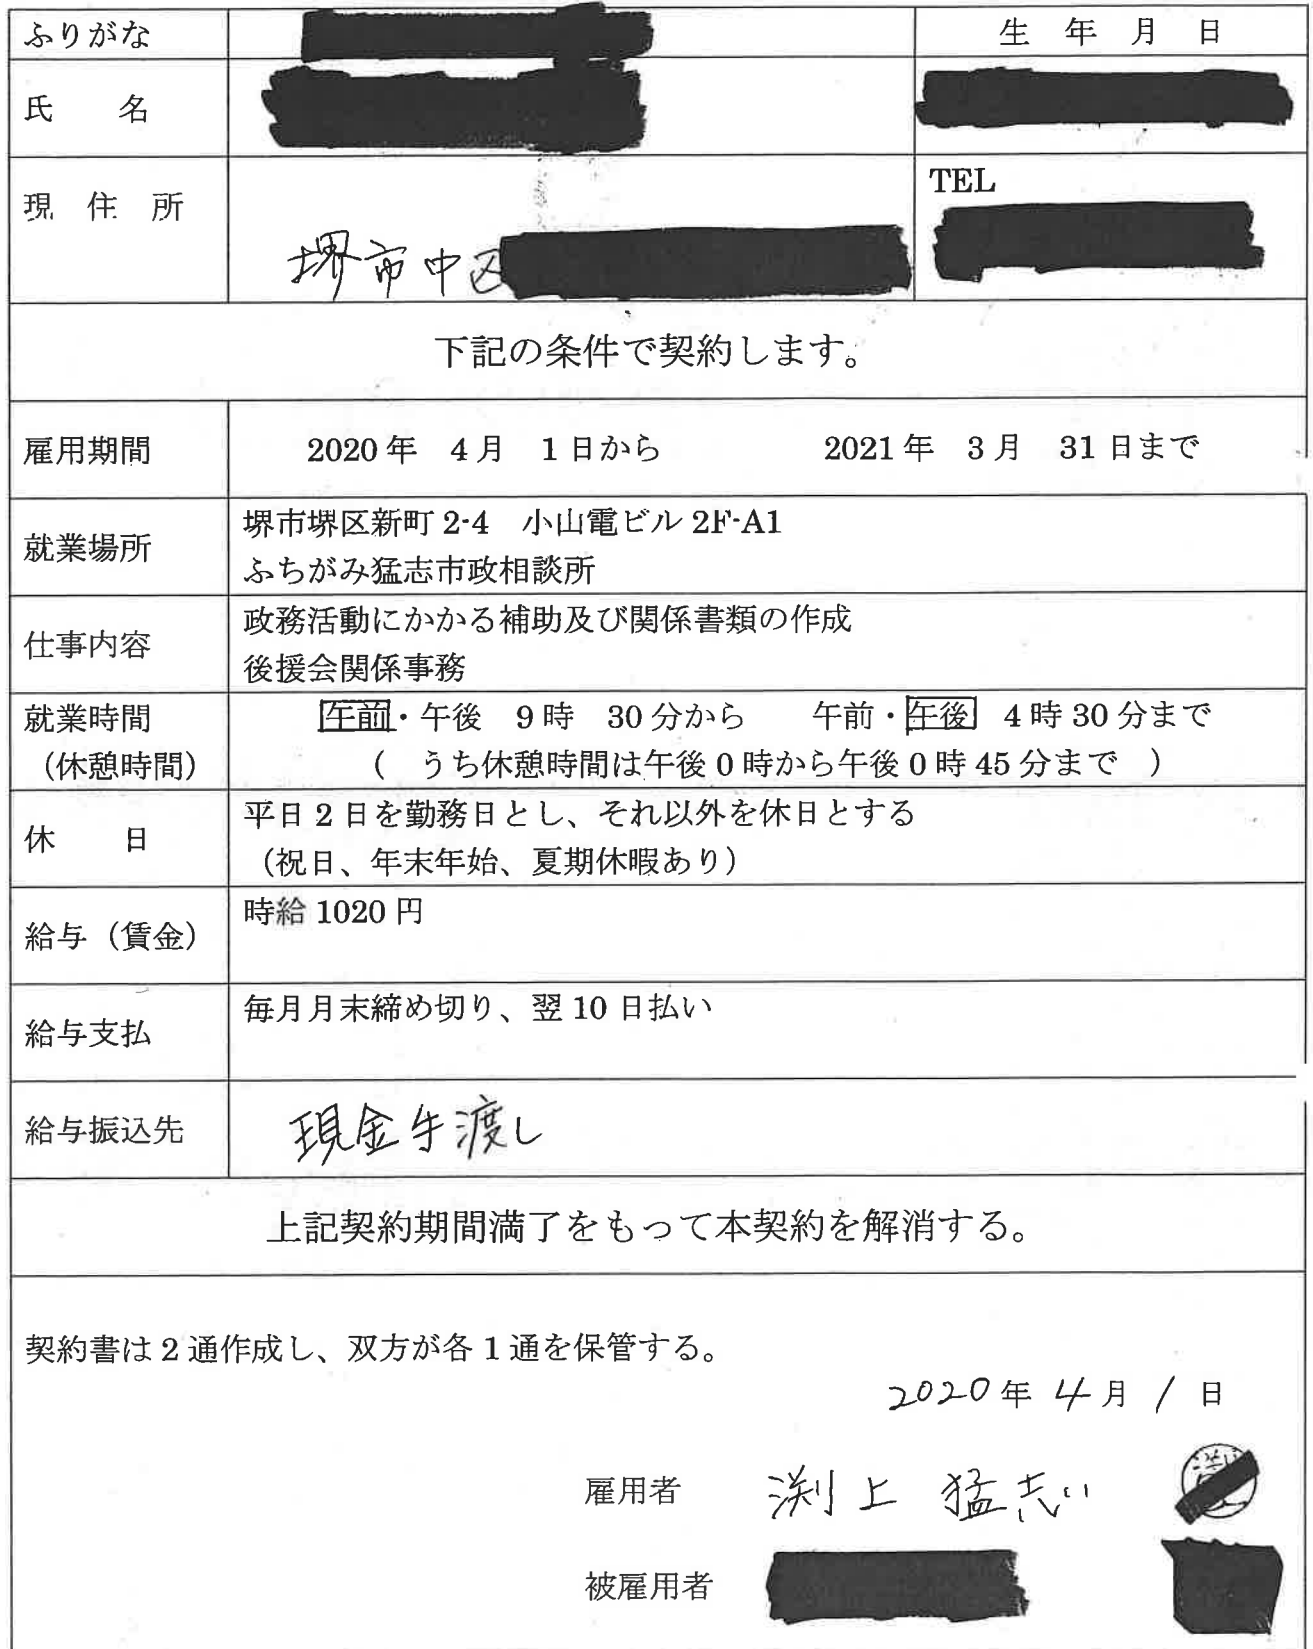 ふりがな
生 年 月 日
氏 名
現 住 所
堺市中区
TEL
下記の条件で契約します。
雇用期間
2020年 4月 1日から 2021年 3月 31日まで
就業場所
堺市堺区新町2-4 小山電ビル2F-A1
ふちがみ猛志市政相談所
仕事内容
政務活動にかかる補助及び関係書類の作成
後援会関係事務
就業時間
（休憩時間）
午前・午後 9時 30分から 午前・午後 4時30分まで
（ うち休憩時間は午後0時から午後0時45分まで ）
休 日
平日2日を勤務日とし、それ以外を休日とする
（祝日、年末年始、夏期休暇あり）
給与（賃金）
時給1020円
給与支払
毎月月末締め切り、翌10日払い
給与振込先
現金手渡し
上記契約期間満了をもって本契約を解消する。
契約書は2通作成し、双方が各1通を保管する。
2020年 4月 1日
雇用者 渕上 猛志
被雇用者